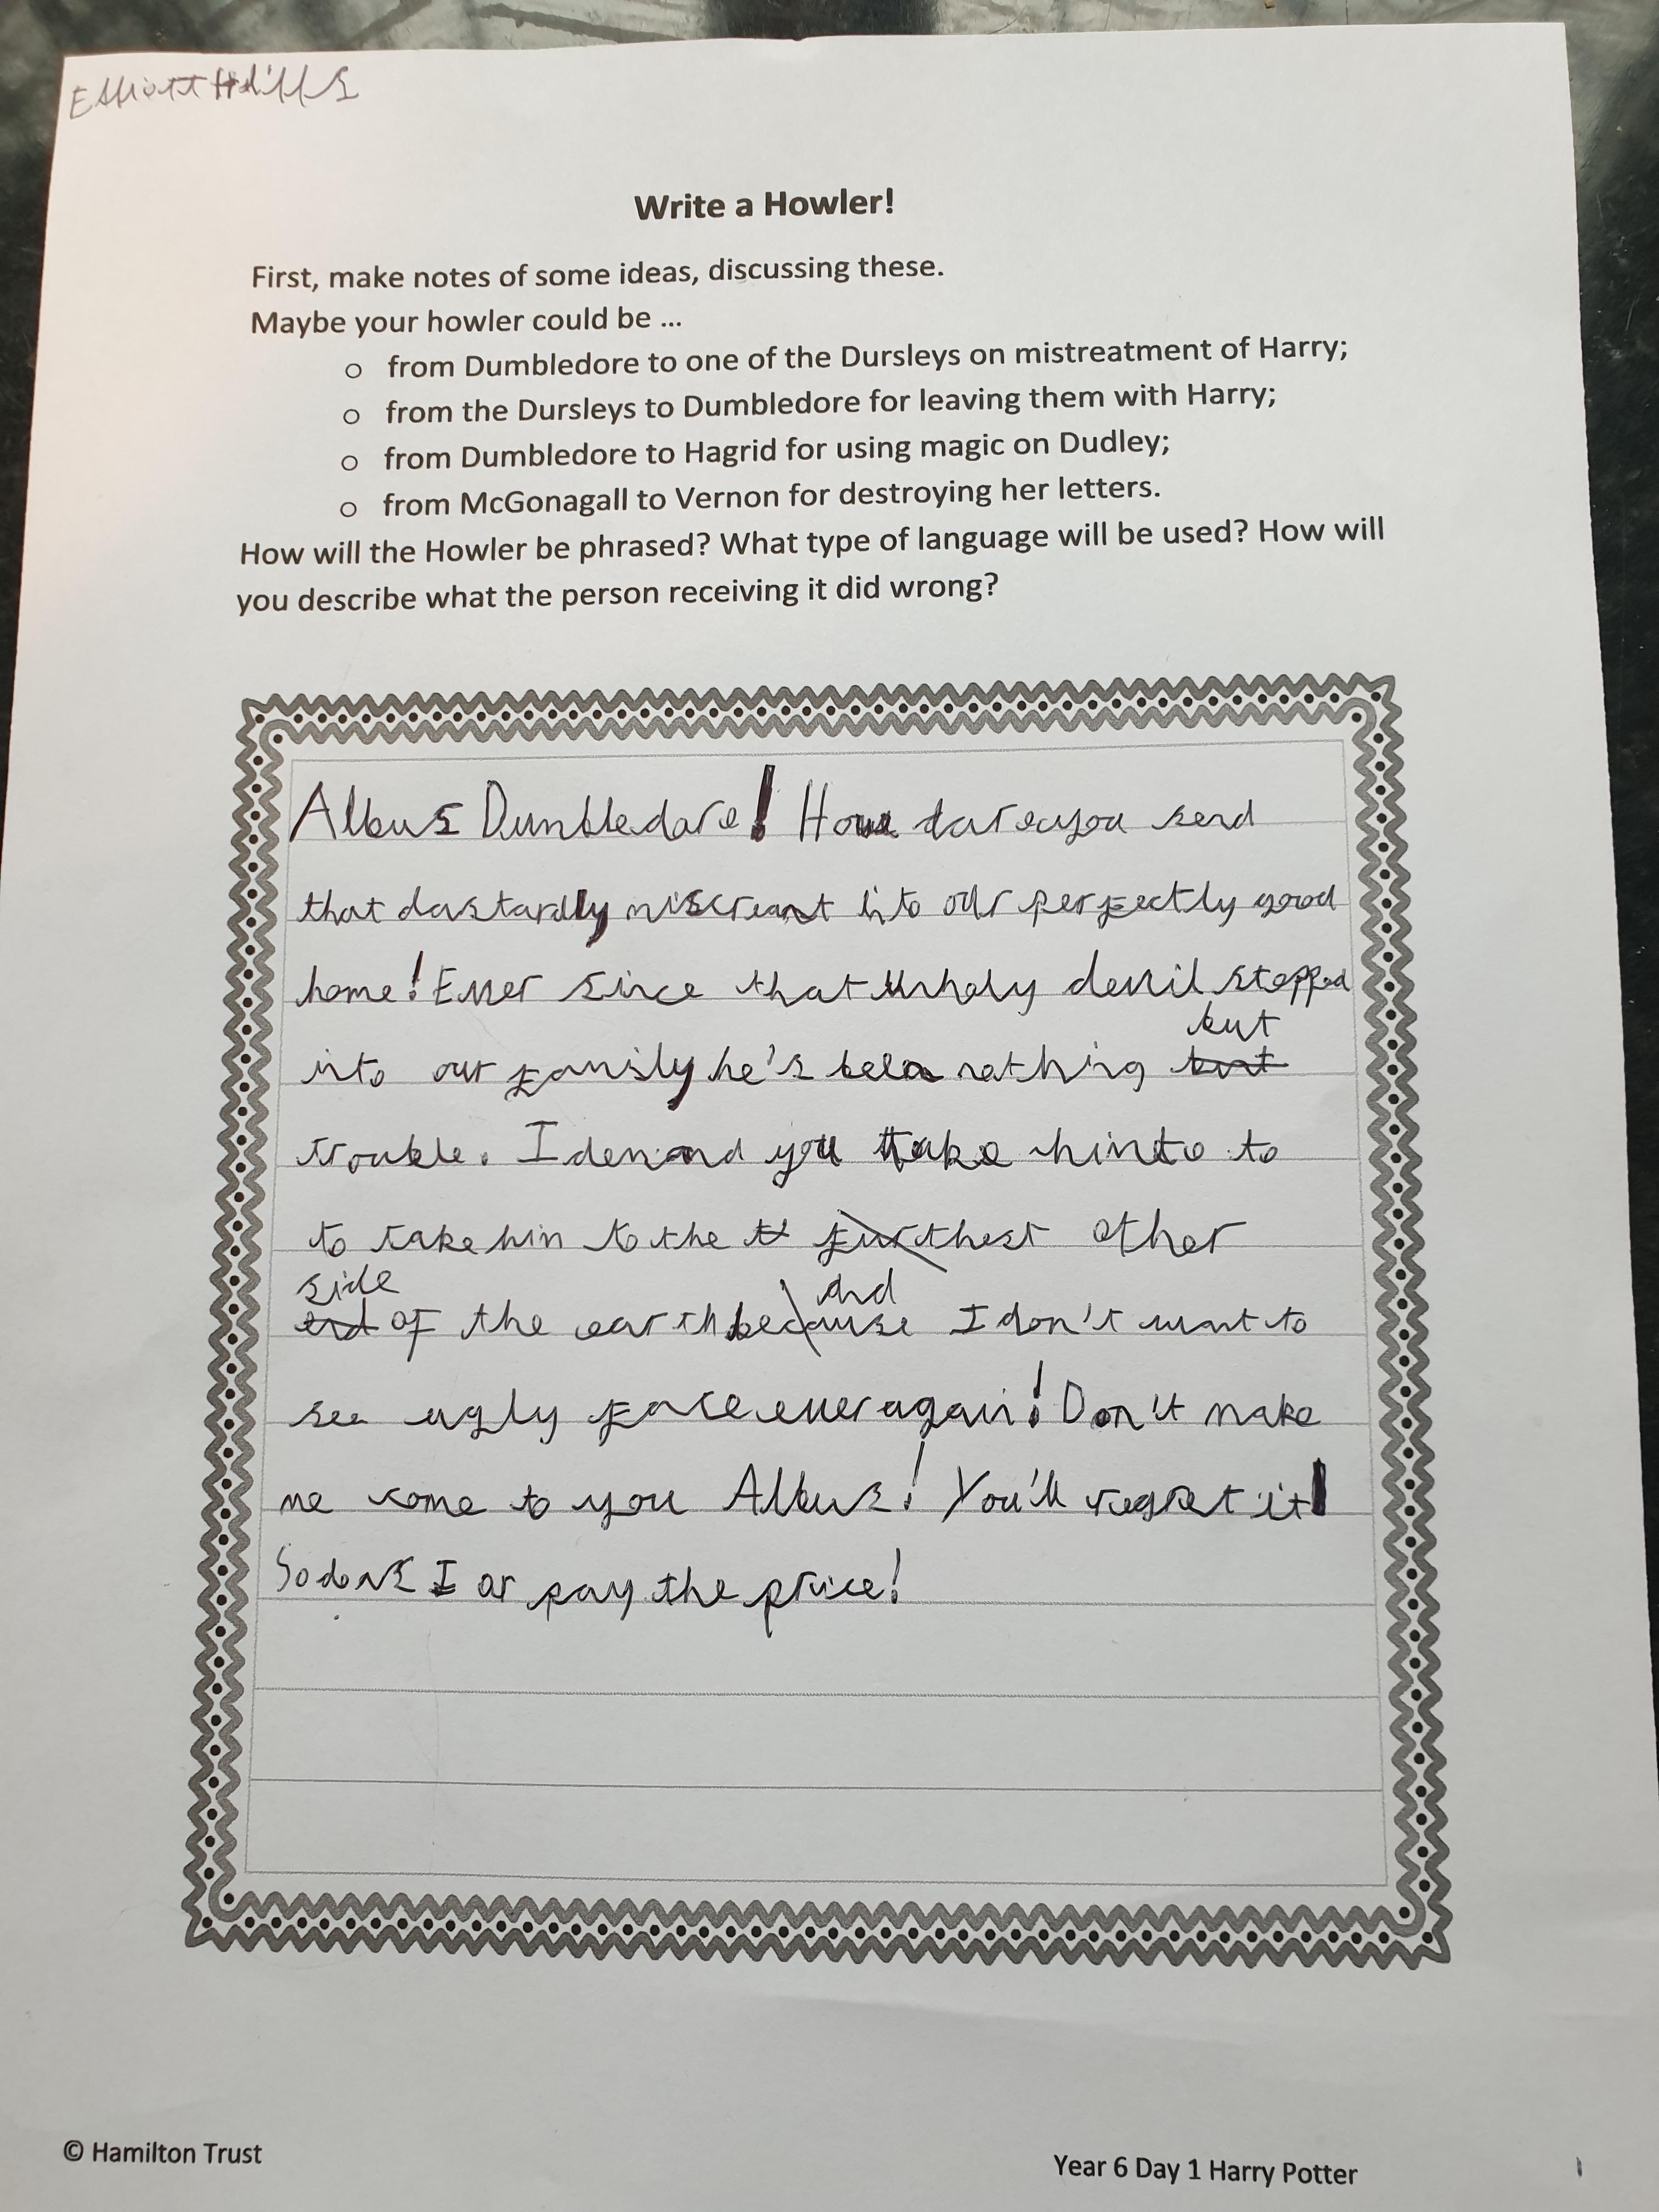 Elliott
Write a Howler!
First, make notes of some ideas, discussing these.
Maybe your howler could be ...
o from Dumbledore to one of the Dursleys on mistreatment of Harry;
o from the Dursleys to Dumbledore for leaving them with Harry;
o from Dumbledore to Hagrid for using magic on Dudley;
o from McGonagall to Vernon for destroying her letters.
How will the Howler be phrased? What type of language will be used? How will
you describe what the person receiving it did wrong?
Albus Dumbledore! How dare you send
that dastardly miscreant into our perfectly good
home! Ever since that unholy devil stepped
but
into our family he's been nothing but
trouble. I demand you take him to to
to take him to the furthest other
side and
end of the earth because I don't want to
see ugly face ever again! Don't make
me come to you Albus! You'll regret it!
So I or pay the price!
© Hamilton Trust
Year 6 Day 1 Harry Potter